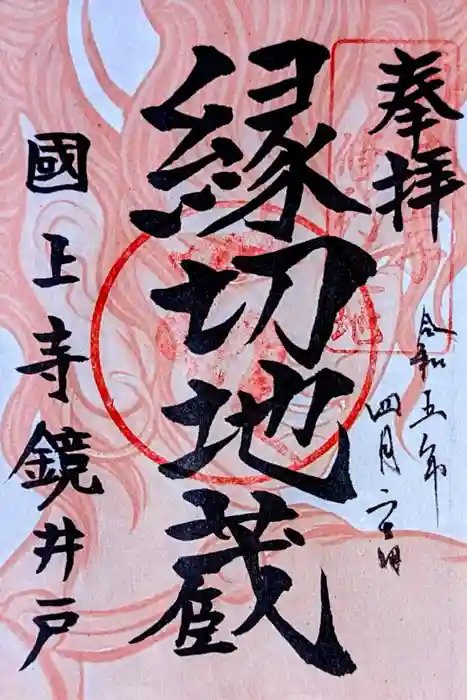 奉拝
令和五年
四月二日
縁切地蔵
國上寺鏡井戸